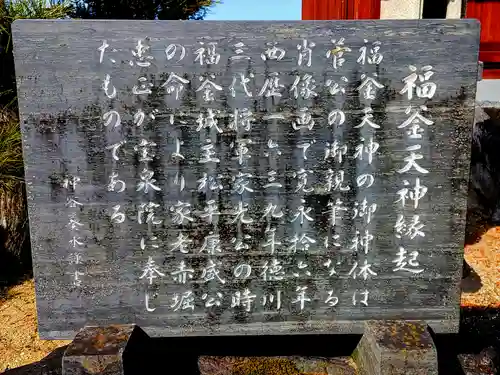 福釜天神縁起
福釜天神の御神体は
菅公の御親筆になる
肖像画で寛永拾六年
西暦一六三九年徳川
三代将軍家光公の時
福釜城主松平康盛公
の命により家老赤堀
恵正が宝泉院に奉じ
たものである
神谷